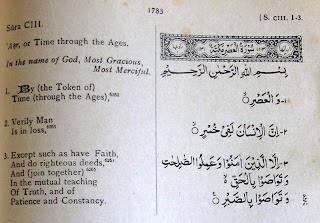 1783
[ S. CIII. 1-3.
Sūra CIII.
'Aṣr, or Time through the Ages.
In the name of God, Most Gracious,
Most Merciful.
1. By (the Token of)
Time (through the Ages),
2. Verily Man
Is in loss,
3. Except such as have Faith,
And do righteous deeds,
And (join together)
In the mutual teaching
Of Truth, and of
Patience and Constancy.
سورة العصر مكية
بِسْمِ اللهِ الرَّحْمٰنِ الرَّحِيْمِ
١- وَالْعَصْرِ
٢- اِنَّ الْاِنْسَانَ لَفِيْ خُسْرٍ
٣- اِلَّا الَّذِيْنَ اٰمَنُوْا وَعَمِلُوا الصّٰلِحٰتِ
وَتَوَاصَوْا بِالْحَقِّ
وَتَوَاصَوْا بِالصَّبْرِ